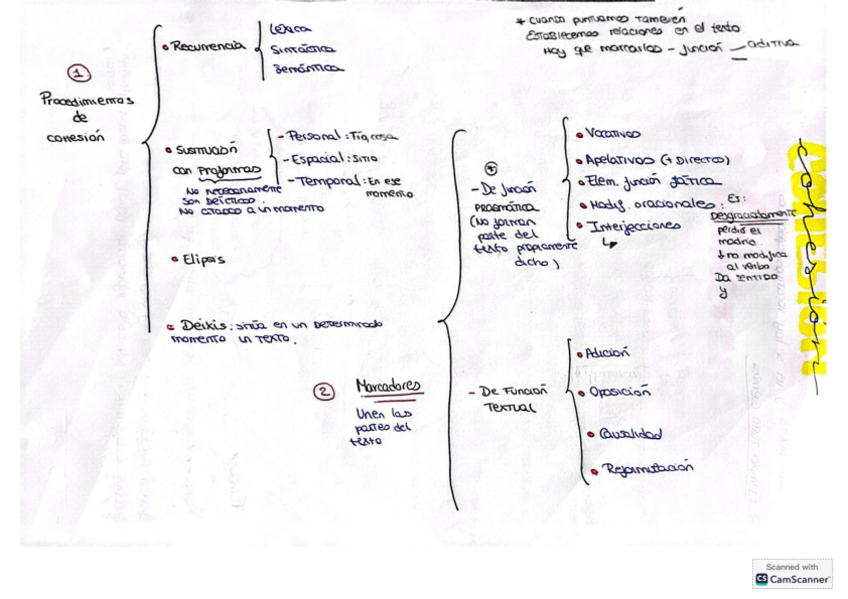 * Cuando puntuamos también
Establecemos relaciones en el texto
Hay que marcarlas - función aditiva
COHESIÓN
cohesión
1
Procedimientos
de
cohesión
• Recurrencia
Léxica
Sintáctica
Semántica
• Sustitución
con proformas
No necesariamente
son deíctico.
No citados a un momento
- Personal: Tía, cosa
- Espacial: Sitio
- Temporal: En ese
momento
• Elipsis
• Deixis: sitúa en un determinado
momento un texto.
2
Marcadores
Unen las
partes del
texto
*
- De función
pragmática
(No forman
parte del
texto propiamente
dicho)
• Vocativos
• Apelativos (+ Directos)
• Elem. función fática
• Modif. oracionales:
• Interjecciones
Ej:
Desgraciadamente
perdió el
Madrid
↓ no modifica
al verbo
Da sentido
y
- De función
textual
• Adición
• Oposición
• Causalidad
• Reformulación
Scanned with
CS CamScanner